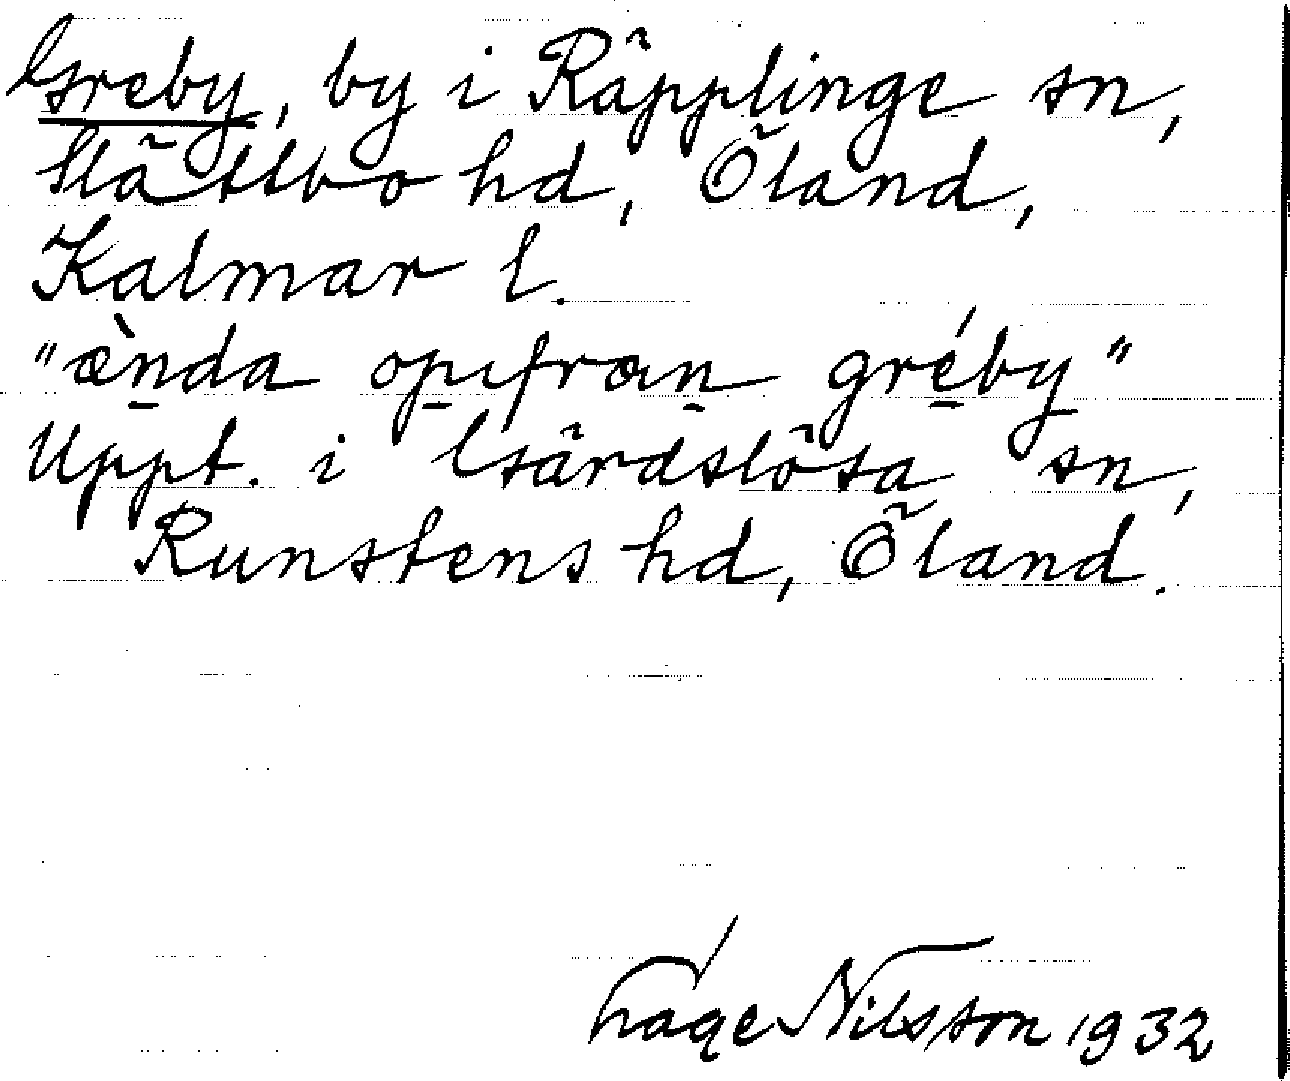 Greby, by i Räpplinge sn,
Slättbo hd, Öland,
Kalmar l.
"ænda opifrån gréby"
Uppt. i Gärdslösa sn,
Runstens hd, Öland.
Hage Nilsson 1932